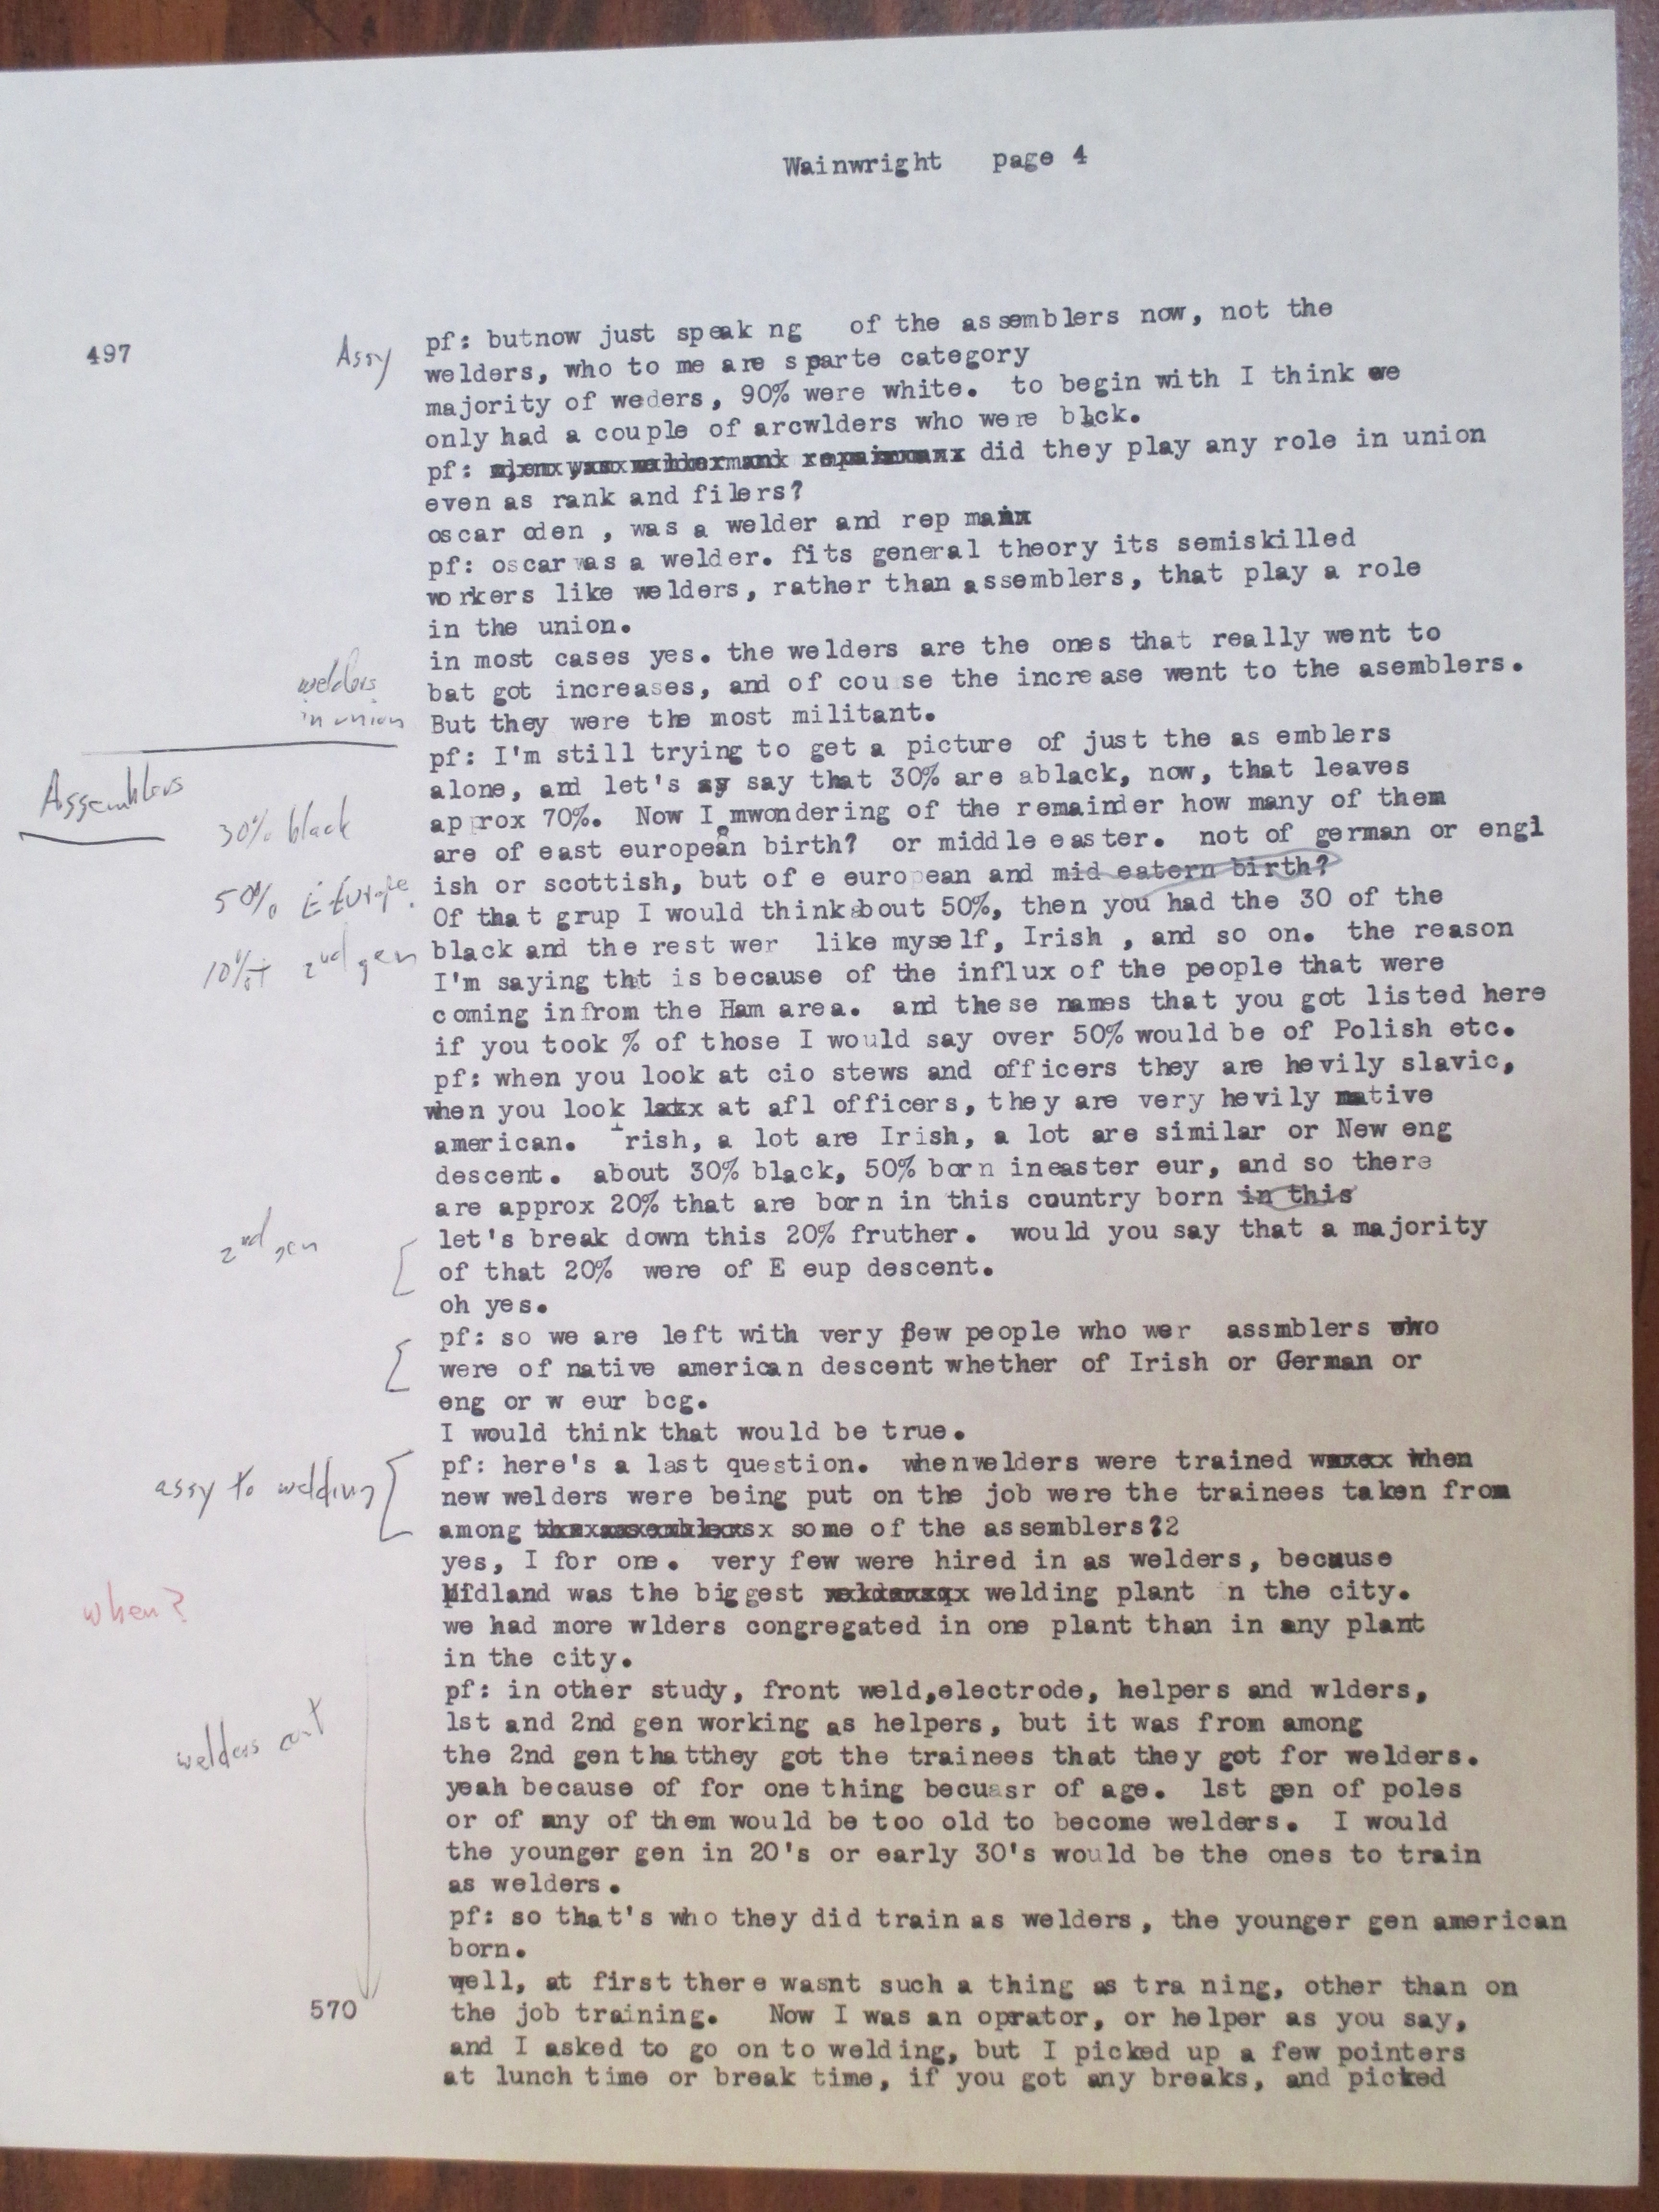 Wainwright page 4
497
Assy
pf: butnow just speak ng of the assemblers now, not the
welders, who to me are sparte category
majority of weders, 90% were white. to begin with I think we
only had a couple of arcwlders who were blck.
pf: did they play any role in union
even as rank and filers?
oscar oden , was a welder and rep man
pf: oscar was a welder. fits general theory its semiskilled
workers like welders, rather than assemblers, that play a role
in the union.
in most cases yes. the welders are the ones that really went to
welders
bat got increases, and of couse the increase went to the asemblers.
in union
But they were the most militant.
pf: I'm still trying to get a picture of just the as emblers
Assemblers
alone, and let's sy say that 30% are ablack, now, that leaves
30% black
approx 70%. Now I mwondering of the remainder how many of them
are of east european birth? or middle easter. not of german or engl
50% E Europe.
ish or scottish, but of e european and mid eatern birth?
Of that grup I would think about 50%, then you had the 30 of the
10%+ 2nd gen
black and the rest wer like myself, Irish , and so on. the reason
I'm saying tht is because of the influx of the people that were
coming infrom the Ham area. and these names that you got listed here
if you took % of those I would say over 50% would be of Polish etc.
pf: when you look at cio stews and officers they are hevily slavic,
when you look at afl officers, they are very hevily native
american. Irish, a lot are Irish, a lot are similar or New eng
descent. about 30% black, 50% born ineaster eur, and so there
are approx 20% that are born in this country born in this
2nd gen
let's break down this 20% fruther. would you say that a majority
of that 20% were of E eup descent.
oh yes.
pf: so we are left with very few people who wer assmblers who
were of native american descent whether of Irish or German or
eng or w eur bcg.
I would think that would be true.
pf: here's a last question. whenwelders were trained when
assy to welding
new welders were being put on the job were the trainees taken from
among some of the assemblers?2
yes, I for one. very few were hired in as welders, because
when?
Midland was the biggest welding plant n the city.
we had more wlders congregated in one plant than in any plant
in the city.
pf: in other study, front weld,electrode, helpers and wlders,
1st and 2nd gen working as helpers, but it was from among
welders cont
the 2nd gen thatthey got the trainees that they got for welders.
yeah because of for one thing becuasr of age. 1st gen of poles
or of any of them would be too old to become welders. I would
the younger gen in 20's or early 30's would be the ones to train
as welders.
pf: so that's who they did train as welders, the younger gen american
born.
well, at first there wasnt such a thing as tra ning, other than on
570
the job training. Now I was an oprator, or helper as you say,
and I asked to go on to welding, but I picked up a few pointers
at lunch time or break time, if you got any breaks, and picked